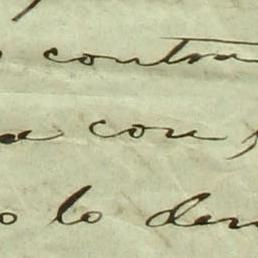 contra
a con
o lo dem